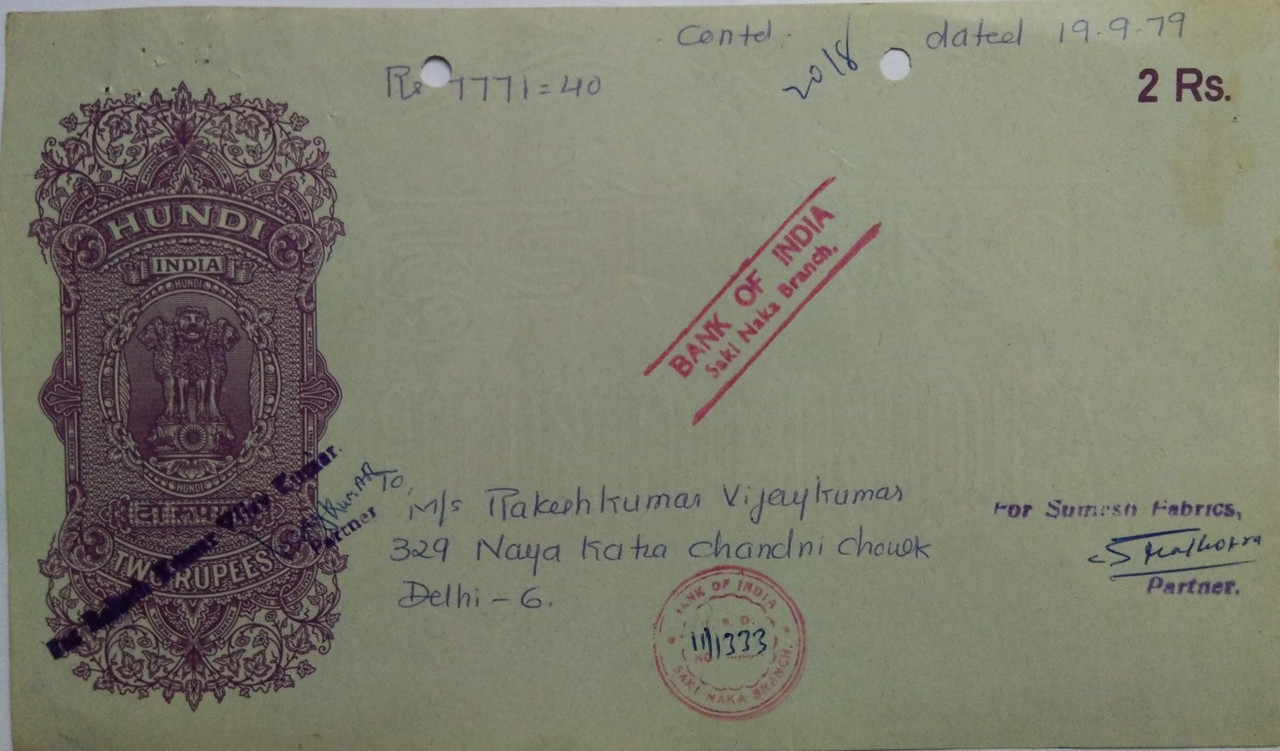 Contd. 2018 dated 19.9.79
Rs 7771=40
2 Rs.
HUNDI
INDIA
HUNDI
INDIA
INDIA
HUNDI
दो रुपये
TWO RUPEES
For Rakesh Kumar Vijay Kumar
Partner
BANK OF INDIA
Saki Naka Branch.
To,
M/s Rakeshkumar Vijaykumar
329 Naya Katra Chandni Chowk
Delhi - 6.
For Sumesh Fabrics,
Partner.
BANK OF INDIA
I. B. D.
11/1333
NO.
SAKI NAKA BRANCH.